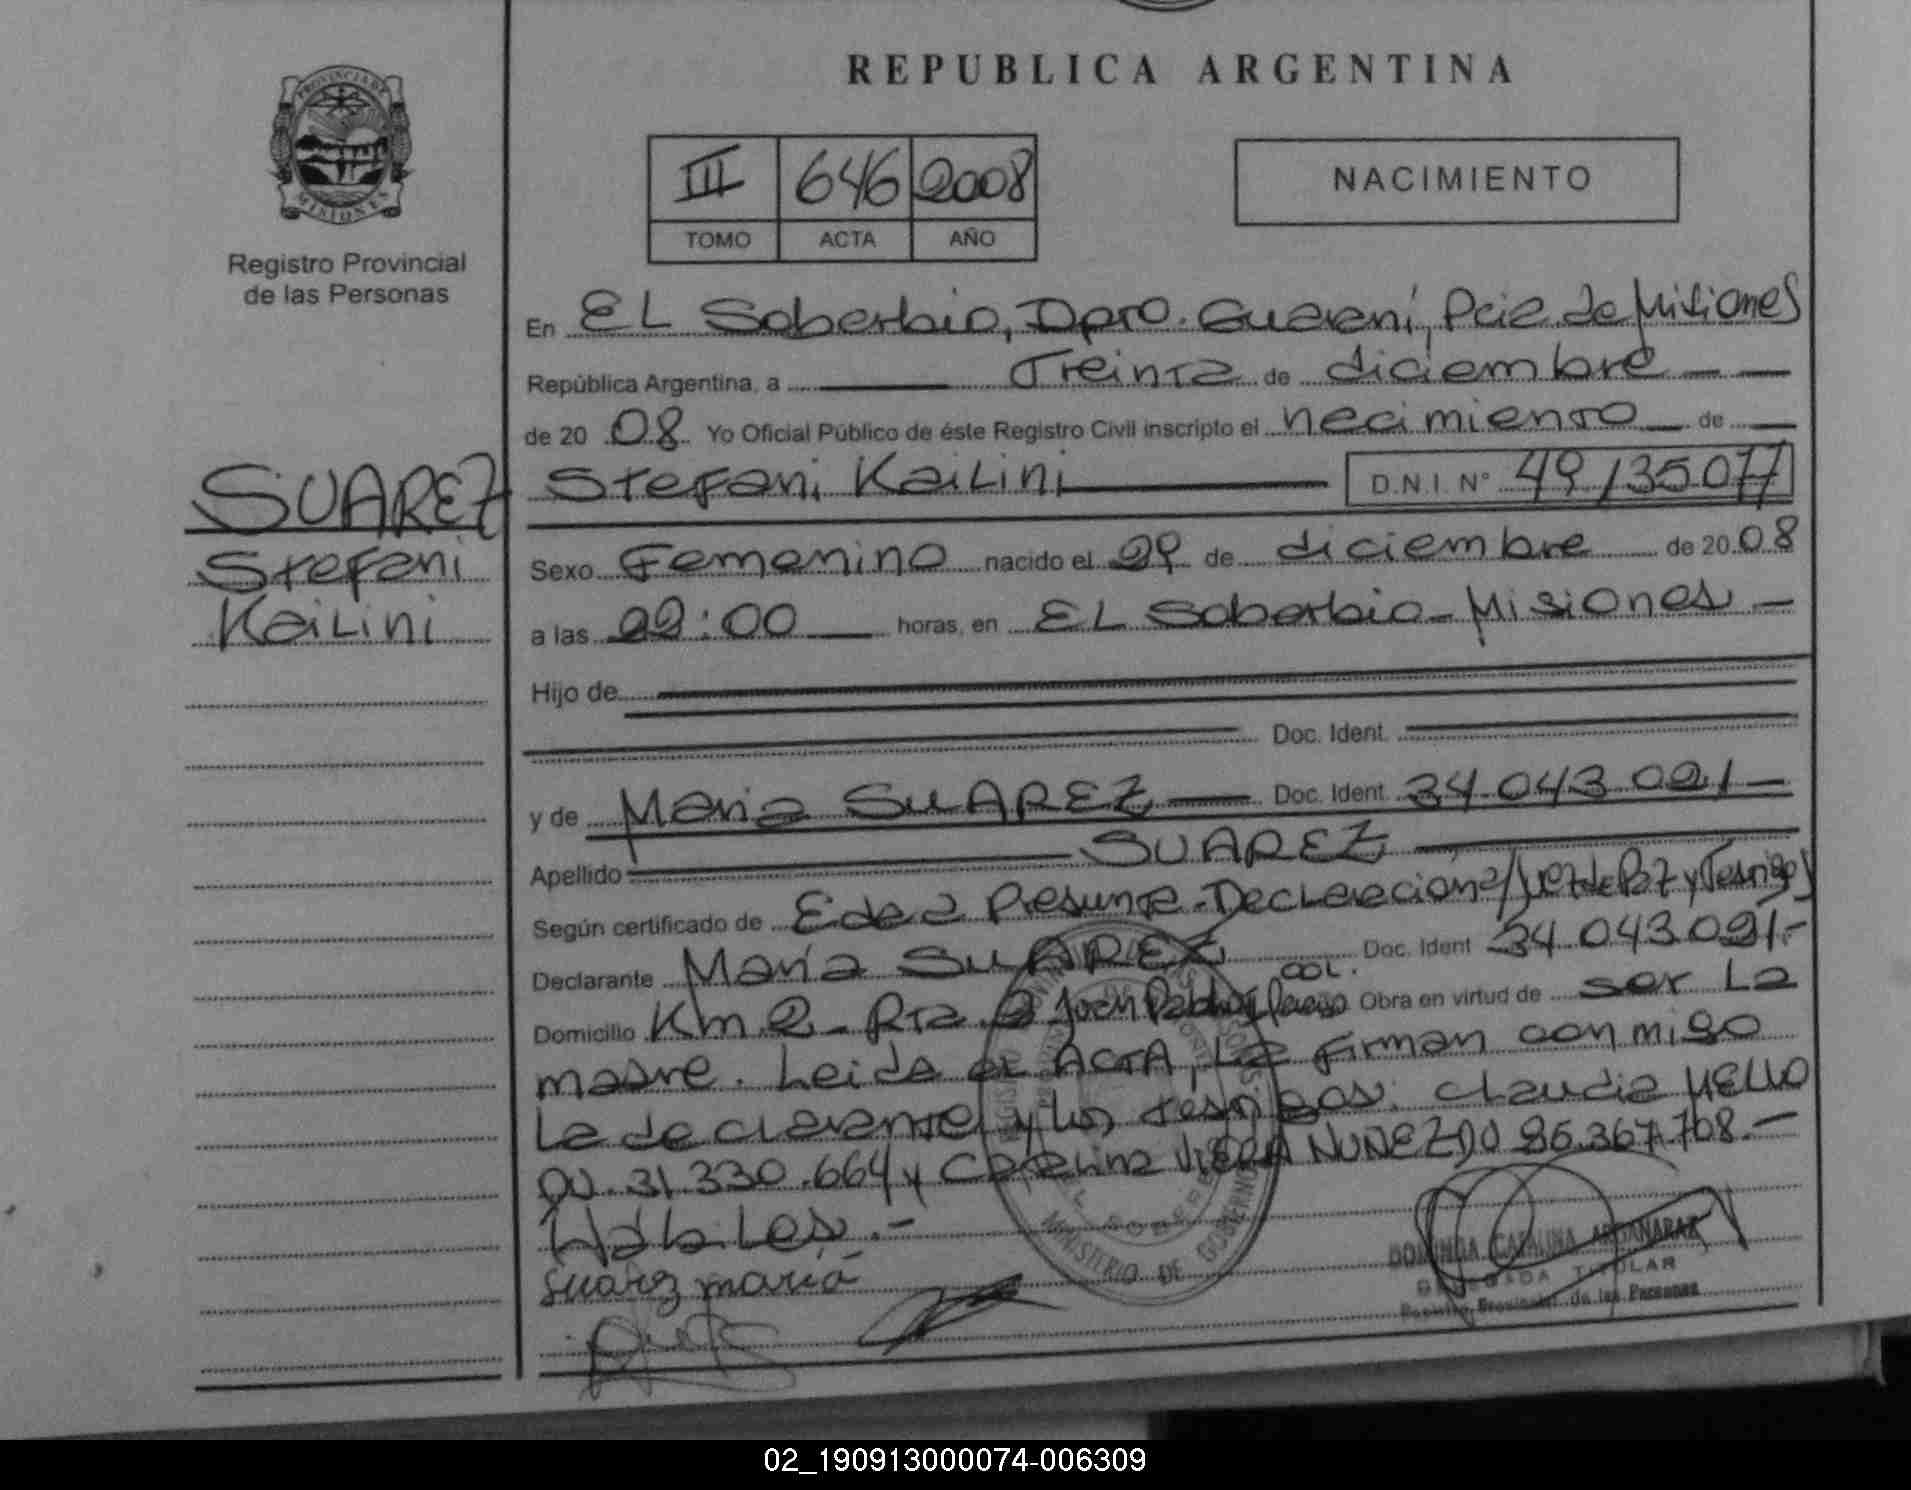 REPUBLICA ARGENTINA
PROVINCIA DE
MISIONES
Registro Provincial
de las Personas
III 646 2008
TOMO ACTA AÑO
NACIMIENTO
En EL Soberbio, Dpto. Guarani, Pcia de Misiones
República Argentina, a Treinta de diciembre
de 2008 Yo Oficial Público de éste Registro Civil inscripto el nacimiento de
SUAREZ
Stefani
Kailini
Stefani Kailini D.N.I. N° 49135077
Sexo Femenino nacido el 29 de diciembre de 2008
a las 22:00 horas, en EL Soberbio - Misiones
Hijo de
Doc. Ident.
y de Maria SUAREZ Doc. Ident. 34.043.091
Apellido SUAREZ
Según certificado de Edad Presunta. Declaracion a/Juez de Paz y Testigos
Declarante María SUAREZ Doc. Ident 34.043.091.-
Domicilio Km 2 - Rta. 2 COL. Juan Pablo Obra en virtud de ser La
madre. Leida el ACTA, La firman conmigo
La declarante y los testigos: Claudia MELLO
DU. 31.330.664 y Catalina VIERA NUNEZ DU 95.367.768.-
Hábiles.-
Suarez maria
MINISTERIO DE GOBIERNO
DOMINGA CATALINA ARGAÑARAZ
DELEGADA TITULAR
Registro Provincial de las Personas
02_190913000074-006309